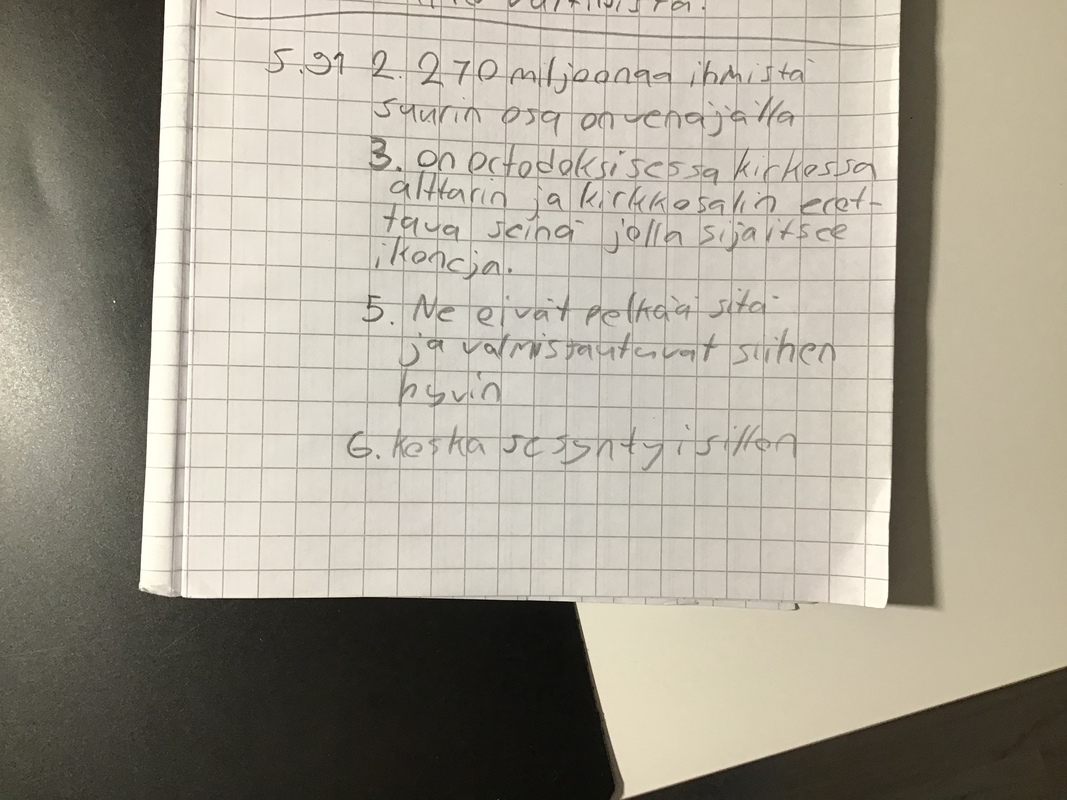 s.91 2. 270 miljoonaa ihmistä
suurin osa on venäjällä
3. on ortodoksisessa kirkossa
alttarin ja kirkkosalin erot-
tava seinä jolla sijaitsee
ikoneja.
5. Ne eivät pelkää sitä
ja valmistautuvat siihen
hyvin
6. koska se syntyi silloin